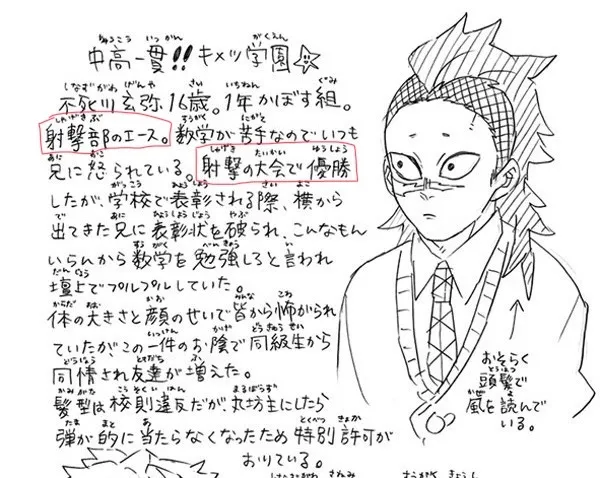 中高一貫!! キメツ学園☆
不死川玄弥16歳。1年かぼす組。
射撃部のエース。数学が苦手なのでいつも
兄に怒られている。射撃の大会で優勝
したが、学校で表彰される際、横から
出てきた兄に表彰状を破られ、こんなもん
いらんから数学を勉強しろと言われ
壇上でプルプルしていた。
体の大きさと顔のせいで皆から怖がられ
ていたが、この一件のお陰で同級生から
同情され友達が増えた。
髪型は校則違反だが丸坊主にしたら
弾が的に当たらなくなったため特別許可が
おりている。
おそらく
頭髪で
風を読んで
いる。